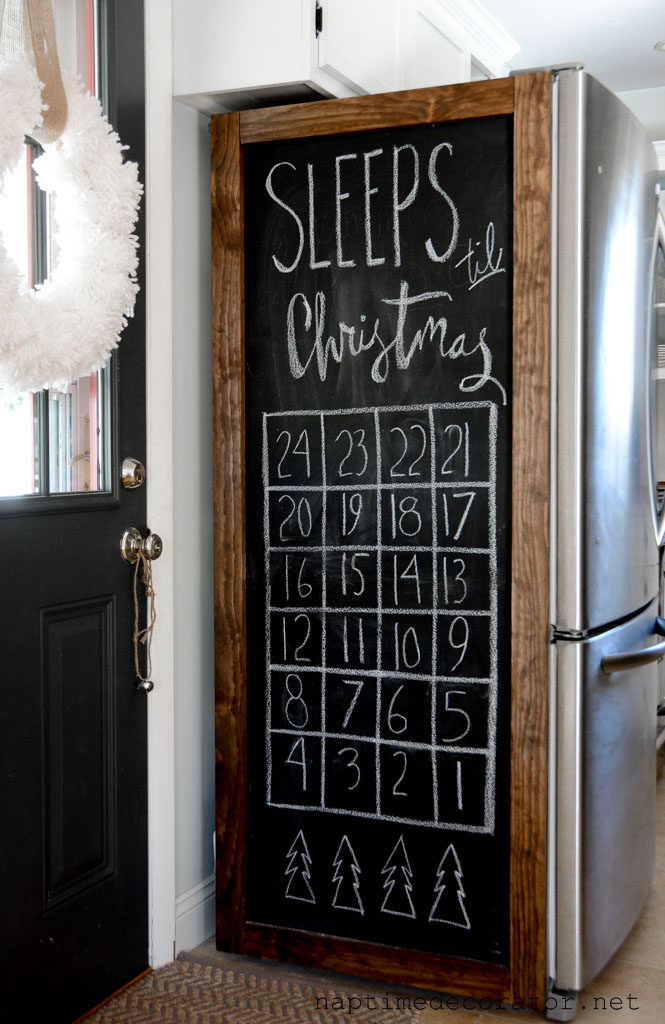 SLEEPS
til
Christmas
24 23 22 21
20 19 18 17
16 15 14 13
12 11 10 9
8 7 6 5
4 3 2 1
naptimedecorator.net